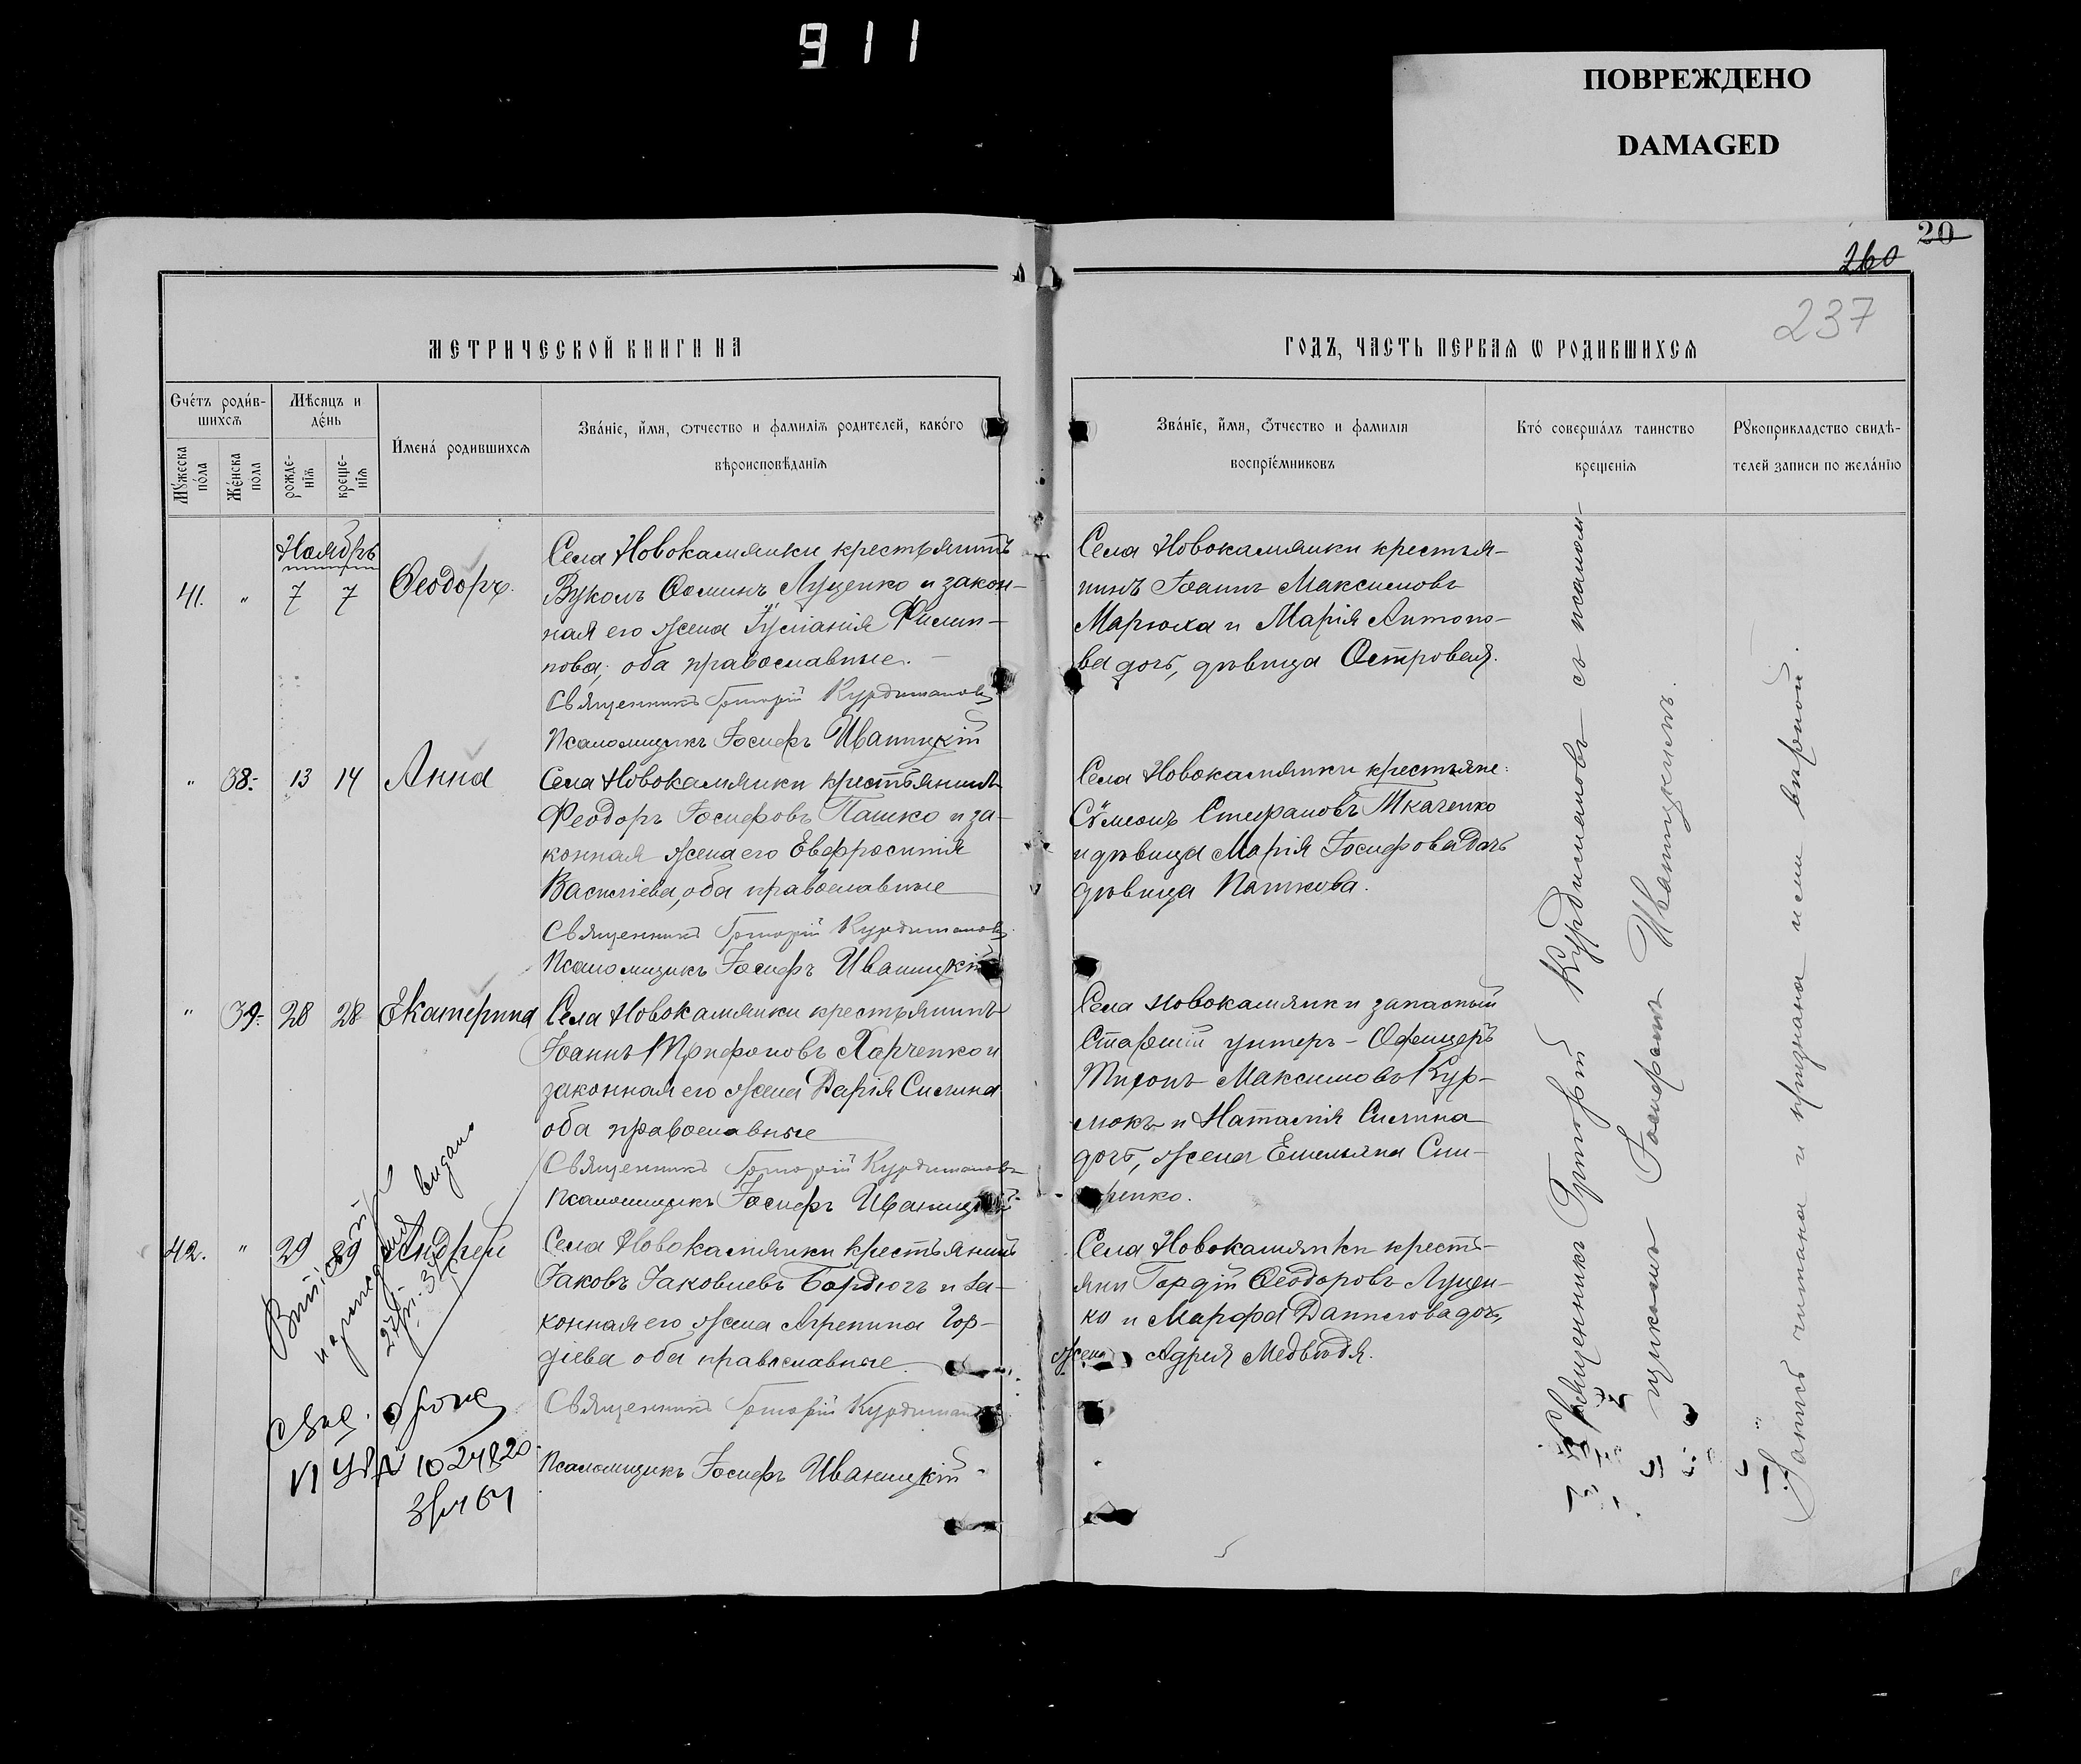 911
ПОВРЕЖДЕНО
DAMAGED
20
260
237
МЕТРИЧЕСКОЙ КНИГИ НА
ГОДЪ, ЧАСТЬ ПЕРВАЯ Ѡ РОДИВШИХСЯ
Счетъ родив-
шихся
Мужеска пола
Женска пола
Мѣсяцъ и день
рожде-
нія
креще-
нія
Имена родившихся
Званіе, имя, отчество и фамилія родителей, какого
вѣроисповѣданія
Званіе, имя, отчество и фамилія
воспріемниковъ
Кто совершалъ таинство
крещенія
Рукоприкладство свидѣ-
телей записи по желанію
Ноябрь
41. " 7 7 Ѳеодоръ.
Села Новокамянки крестьянинъ
Вуколъ Ѳоминъ Луценко и закон-
ная его жена Филип-
пова, оба православные.
Священникъ Григорій Курдимановъ
Псаломщикъ Іосифъ Иваницкій
Села Новокамянки крестья-
нинъ Іоаннъ Максимовъ
Марюха и Марія Антоно-
ва дочь, дѣвица Островая.
" 38. 13 14 Анна
Села Новокамянки крестьянинъ
Феодоръ Іосифовъ Пашко и за-
конная жена его Евфросинія
Василіева, оба православные
Священникъ Григорій Курдимановъ
Псаломщикъ Іосифъ Иваницкій
Села Новокамянки крестьяне:
Стефановъ Ткаченко
и дѣвица Марія Іосифова дочь
дѣвица Пашкова.
" 39. 28 28 Екатерина
Села Новокамянки крестьянинъ
Іоаннъ Трифоновъ Харченко и
законная его жена Дарія Силина
оба православные
Священникъ Григорій Курдимановъ
Псаломщикъ Іосифъ Иваницкій
Села Новокамянки запасный
Старшій унтеръ-Офицеръ
Миронъ Максимовъ Кур-
люкъ и Наталія Силина
дочь, жена Емельяна Сит-
ренко.
42. " 29 29 Андрей
Села Новокамянки крестьянинъ
Іаковъ Іаковлевъ Бардюгъ и за-
конная его жена Агрепина Гор-
діева оба православные.
Священникъ Григорій Курдимановъ
Псаломщикъ Іосифъ Иваницкій
Села Новокамянки кресть-
яни Гордій Ѳеодоровъ Луцен-
ко и Марфа Даниилова дочь,
жена Адрія Медвѣдя.
видано
Священникъ Григорій Курдимановъ съ псалом-
щикомъ Іосифомъ Иваницкимъ.
Запись читана и признана нами вѣрной.